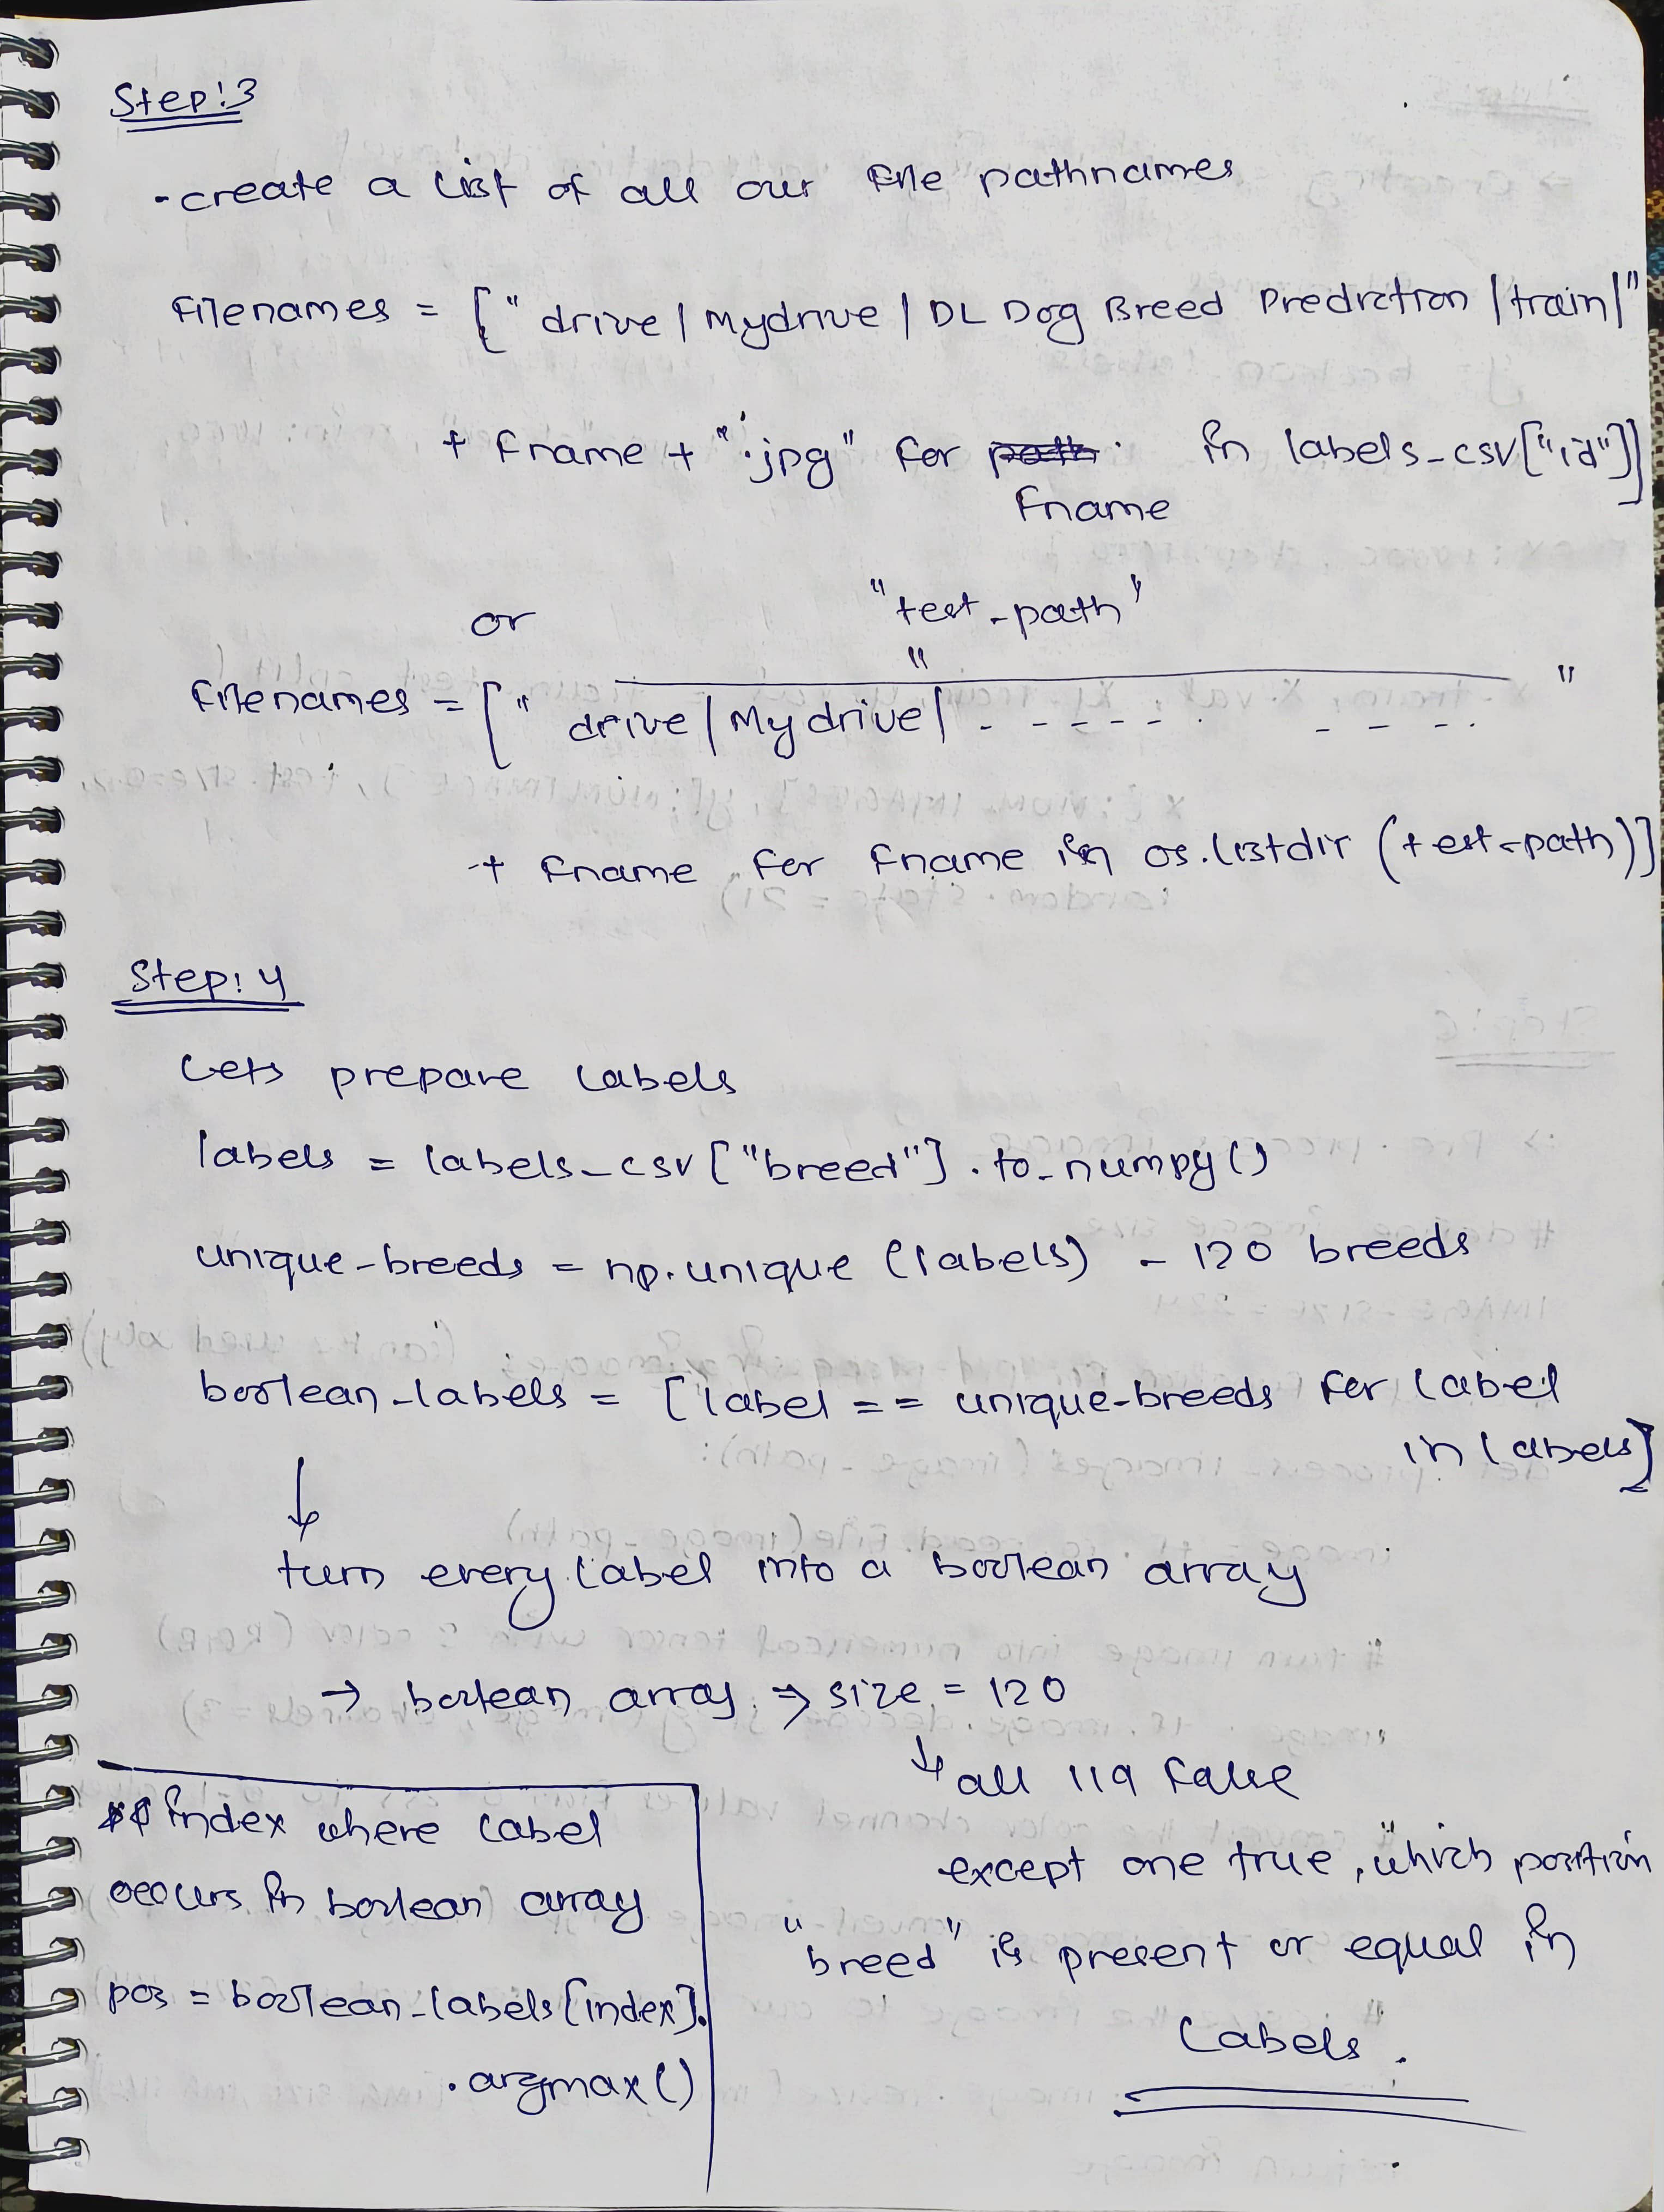 Step:3
- create a list of all our file pathnames
Filenames = ["drive/Mydrive/DL Dog Breed Prediction/train/"
+ fname + ".jpg" for fname in labels_csv["id"]]
or
"test_path"
"
Filenames = [" drive/Mydrive/ - - - - - - - - - "
+ fname for fname in os.listdir (test_path)]
Step: 4
Lets prepare labels
labels = labels_csv["breed"].to_numpy()
unique_breeds = np.unique (labels) - 120 breeds
boolean_labels = [label == unique_breeds for label
in labels]
↓
turn every label into a boolean array
→ boolean array ⇒ size = 120
↳ all 119 false
except one true, which position
"breed" is present or equal in
Labels.
index where label
occurs in boolean array
pos = boolean_labels[index].
.argmax()